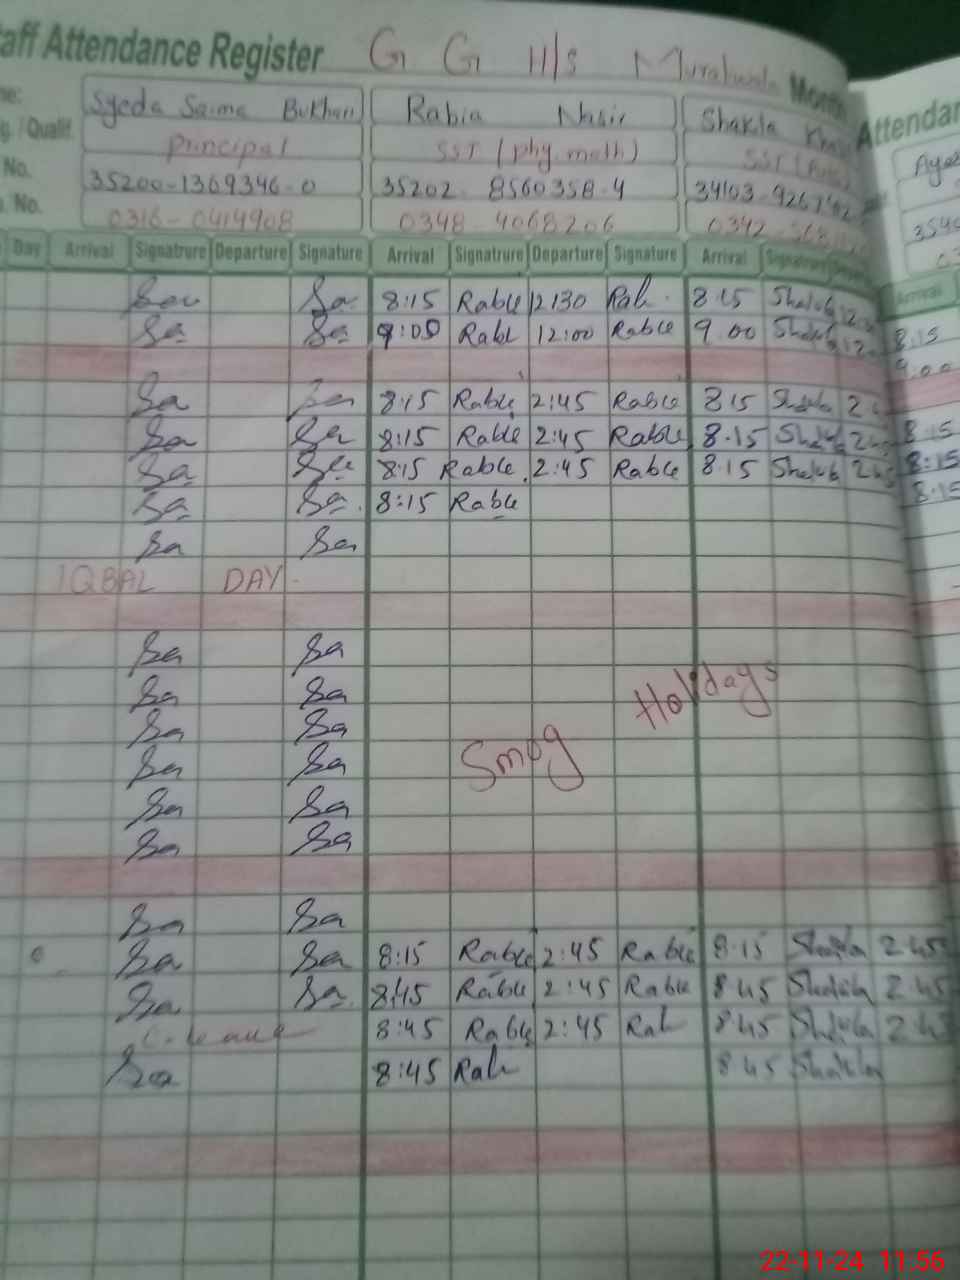 aff Attendance Register G G H/S Muraliwala Month
Attendan
me: Syeda Saima Bukhari Rabia Nasir Shakila
g. / Qualif. Principal SST (phy.math) SST (Arts)
No. 35200-1369346-0 35202-8560358-4 34103-926
. No. 0316-0414908 0348-4068206 0342
Day Arrival Signatrure Departure Signature Arrival Signatrure Departure Signature Arrival Signatrure
Arrival
Sa Sa 8:15 Rabie 12:30 Rab. 8:15 Shakila 12:
8:15
Sa Sa 9:00 Rabi 12:00 Rabie 9.00 Shakila 12
9.00
Sa Sa 8:15 Rabie 2:45 Rabie 8 15 Shakila 2
Sa Sa 8:15 Rabie 2:45 Rabie 8.15 Shakila 2 45
8:15
Sa Sa 8:15 Rabie 2:45 Rabie 8 15 Shakila 2 45
8:15
Sa Sa 8:15 Rabie
8:15
Sa Sa
IQBAL DAY
Sa Sa
Sa Sa
Sa Sa
Sa Sa
Sa Sa
Sa Sa
Smog Holidays
Sa Sa
Sa Sa 8:15 Rabie 2:45 Rabie 8.15 Shakila 2 45
Sa Sa 8:45 Rabie 2:45 Rabie 8 45 Shakila 2 45
C.leave 8:45 Rabie 2:45 Rab 8 45 Shakila 2:45
Saa 8:45 Rab 8 45 Shakila
22-11-24 11:56